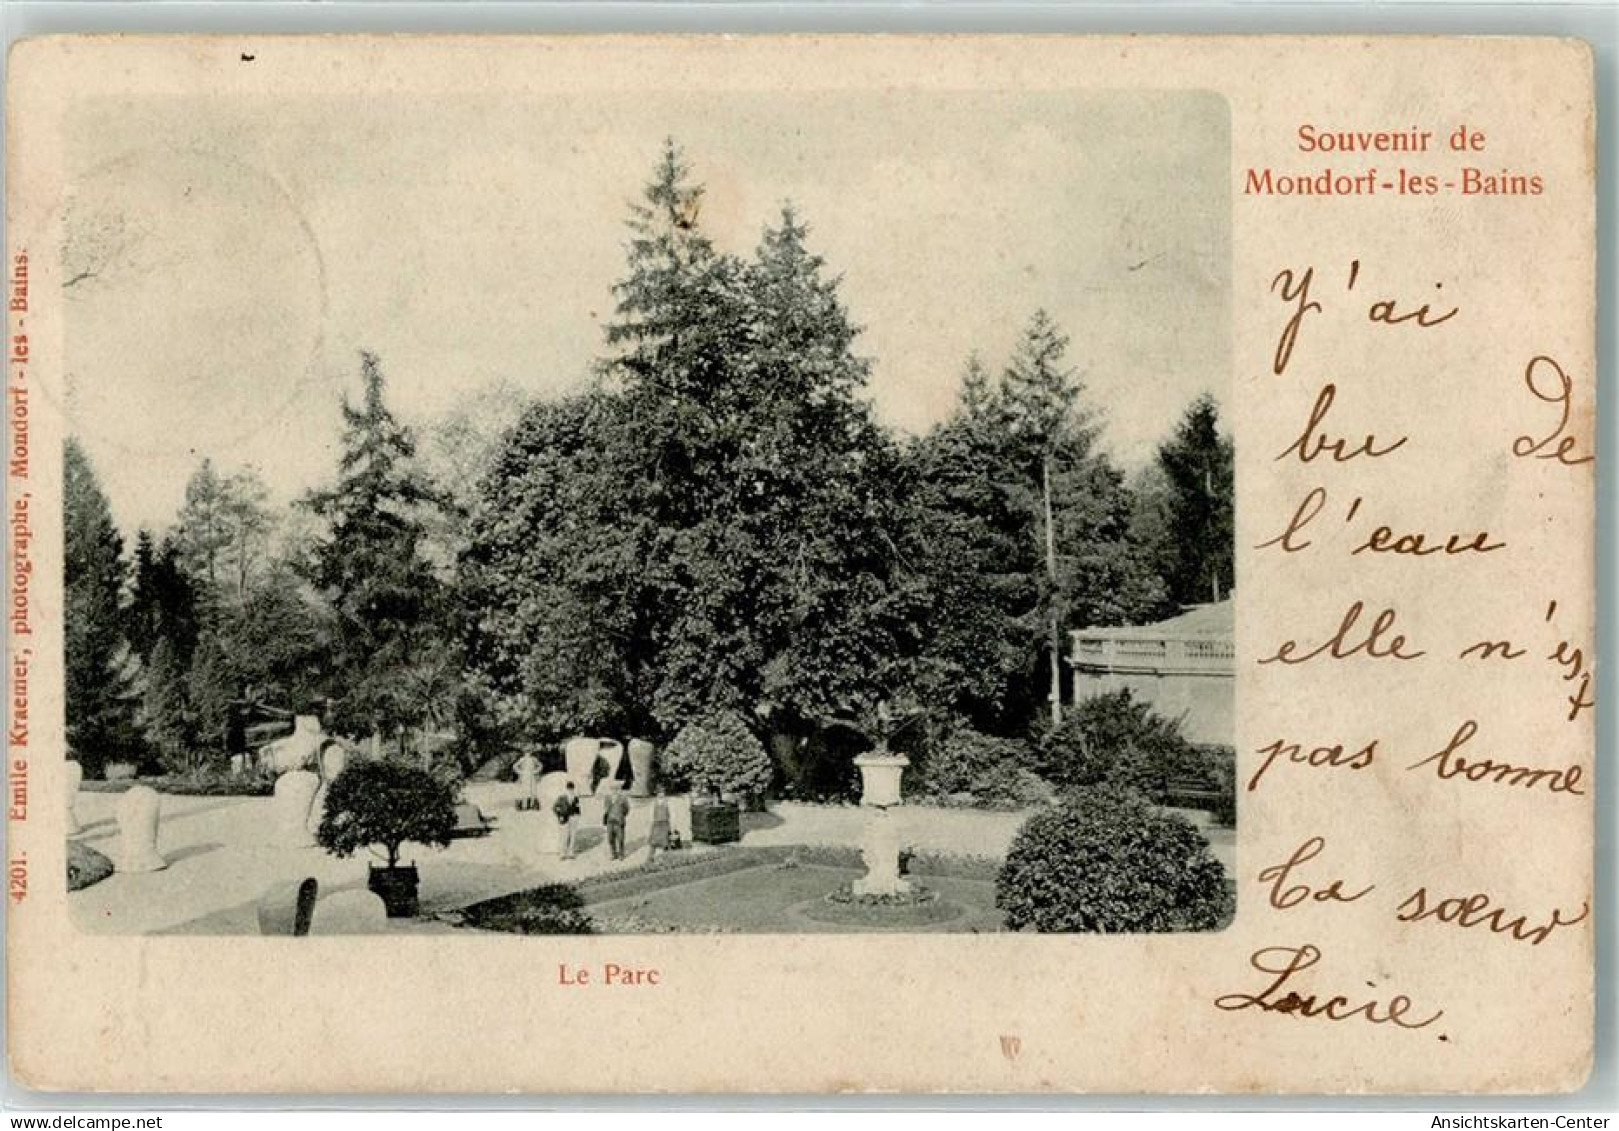 Souvenir de
Mondorf-les-Bains
Y'ai
bu de
l'eau
elle n'est
pas bonne
Ta sœur
Lucie.
Le Parc
4201. Emile Kraemer, photographe, Mondorf-les-Bains.
delcampe.net
Ansichtskarten-Center